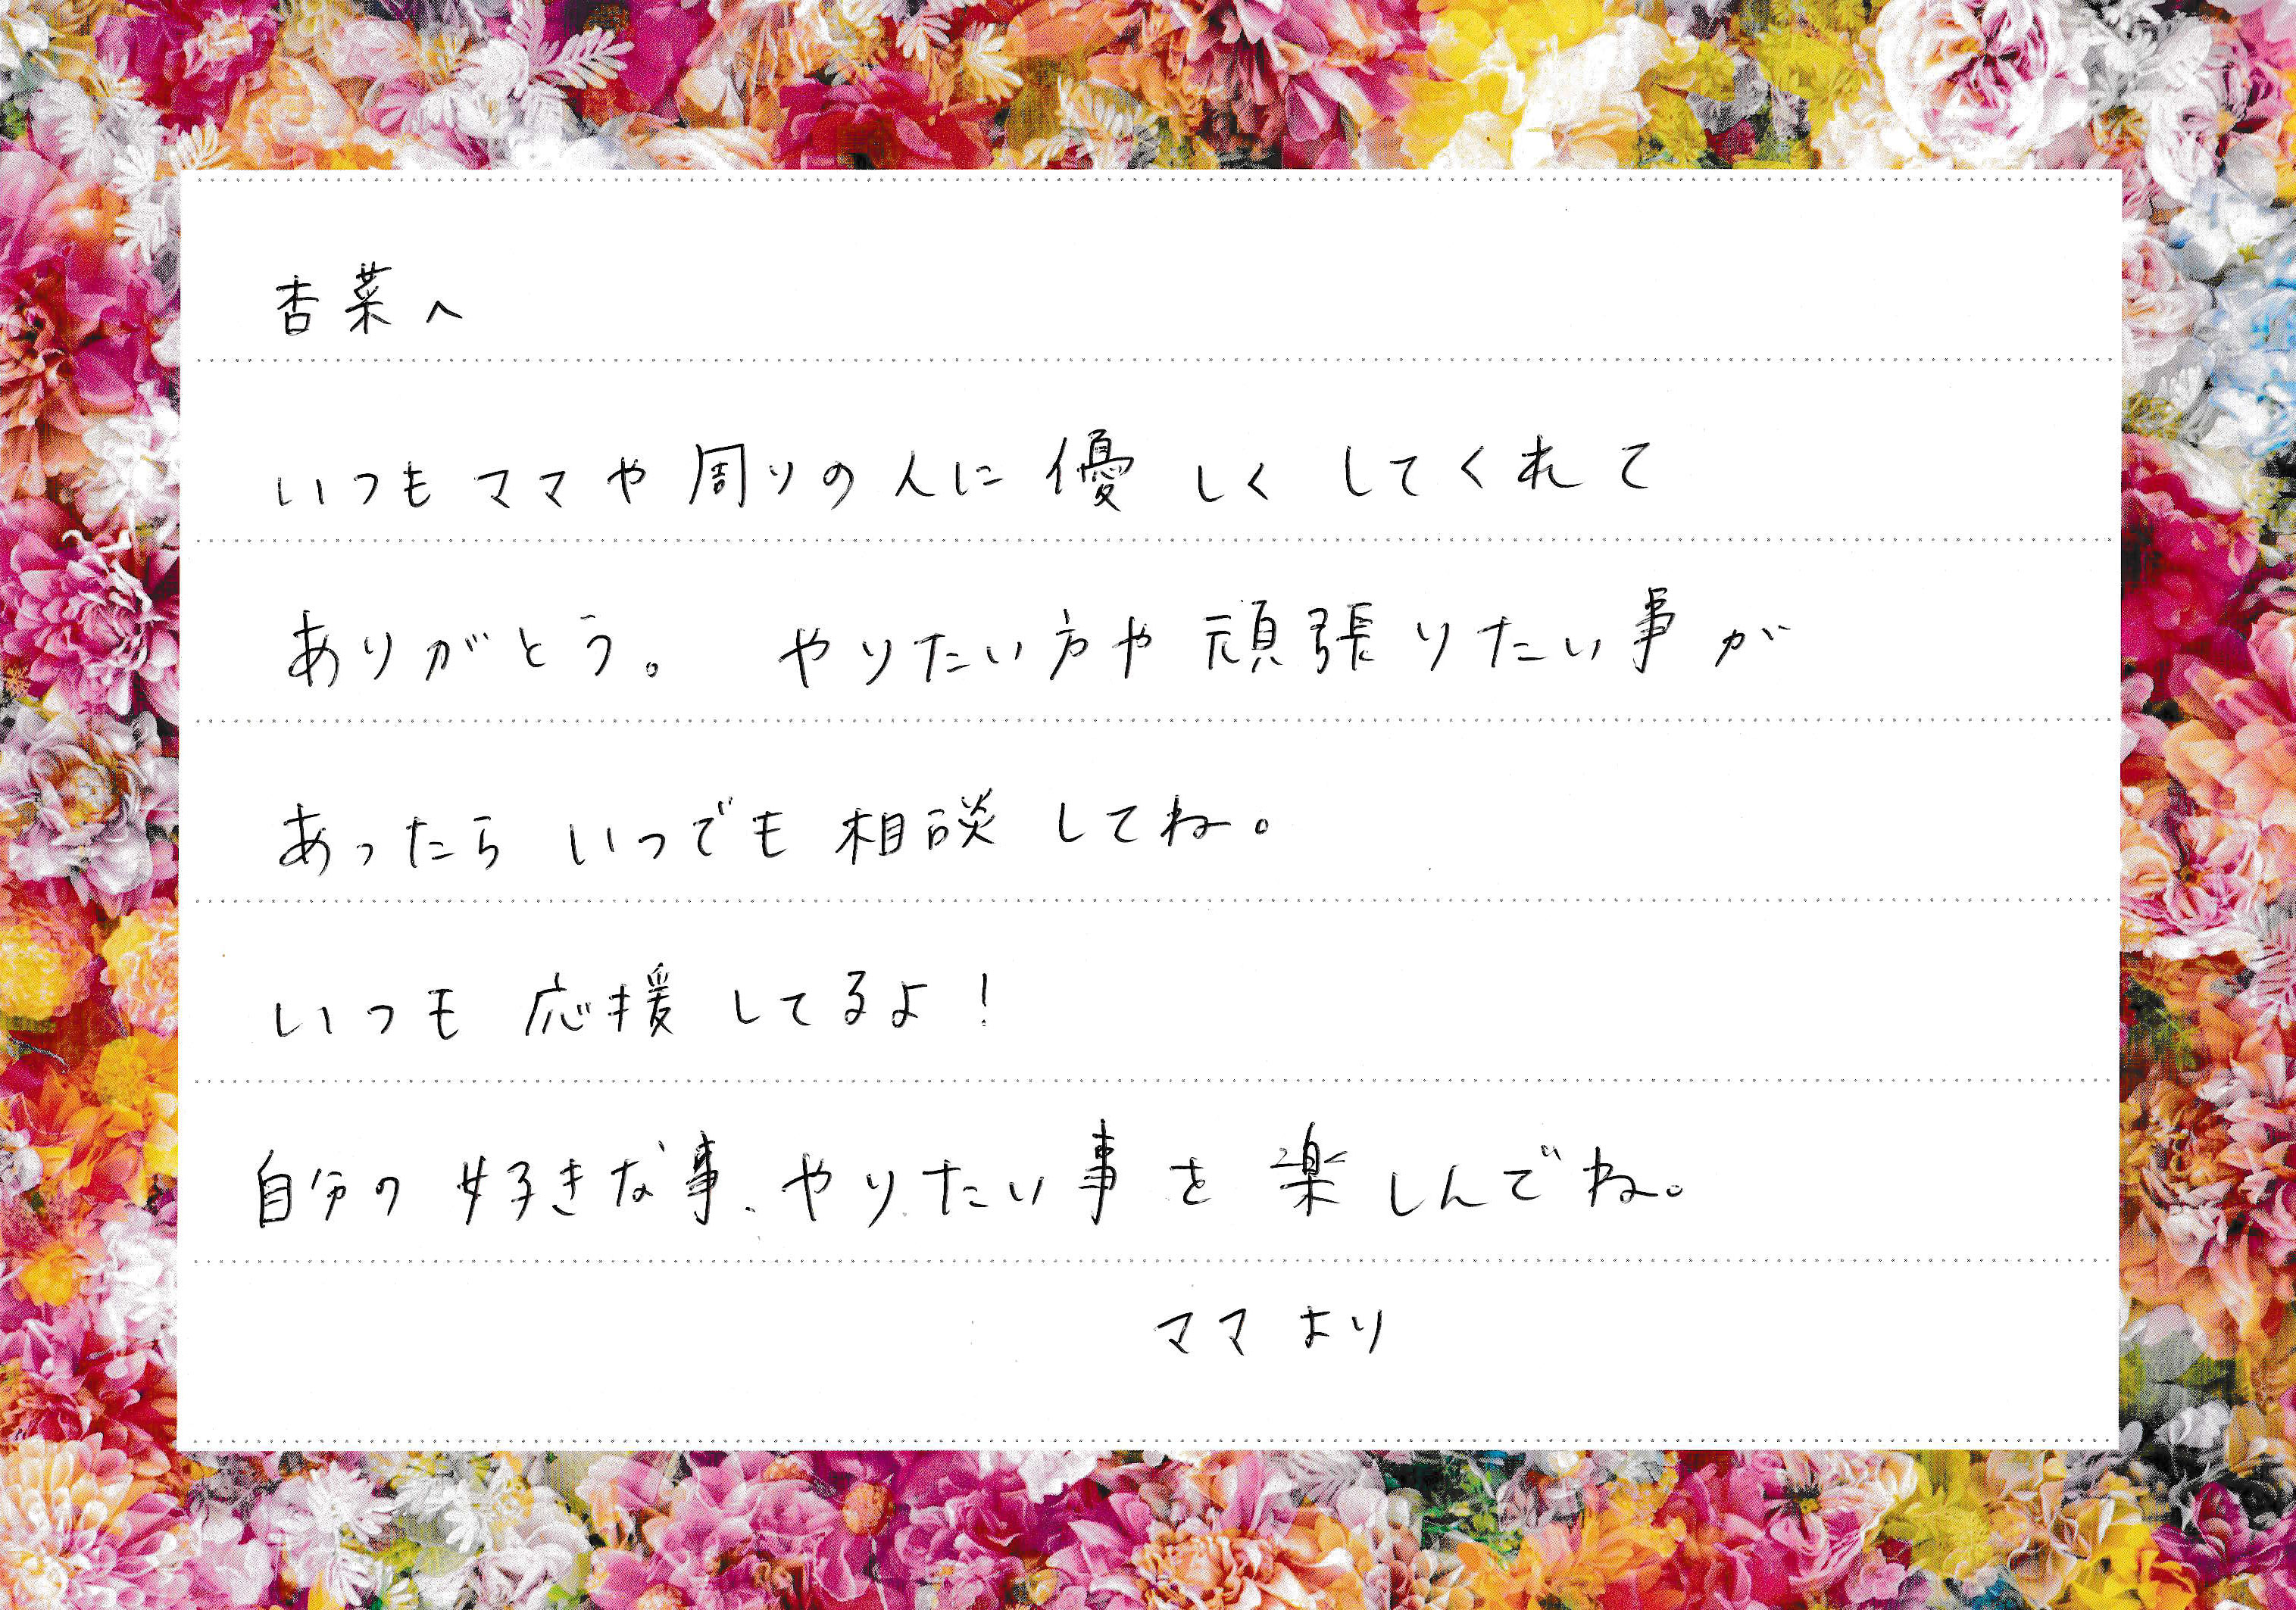 杏菜へ
いつもママや周りの人に優しくしてくれて
ありがとう。 やりたい方や頑張りたい事が
あったらいつでも相談してね。
いつも応援してるよ!
自分の好きな事、やりたい事を楽しんでね。
ママより